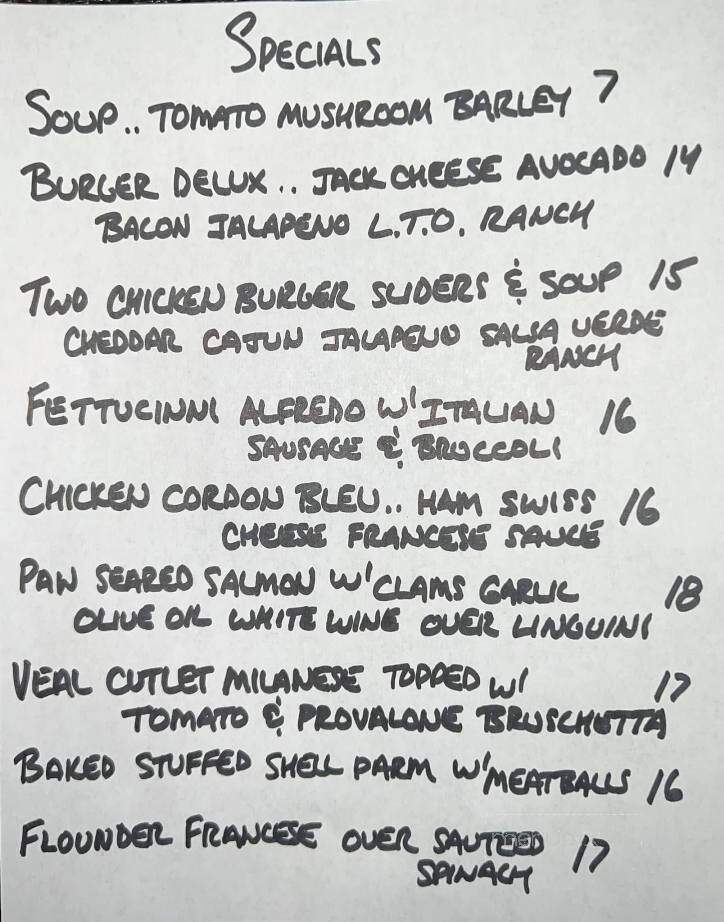 SPECIALS
SOUP.. TOMATO MUSHROOM BARLEY 7
BURGER DELUX.. JACK CHEESE AVOCADO 14
BACON JALAPENO L.T.O. RANCH
TWO CHICKEN BURGER SLIDERS & SOUP 15
CHEDDAR CAJUN JALAPENO SALSA VERDE
RANCH
FETTUCINNI ALFREDO W/ ITALIAN 16
SAUSAGE & BROCCOLI
CHICKEN CORDON BLEU.. HAM SWISS 16
CHEESE FRANCESE SAUCE
PAN SEARED SALMON W/ CLAMS GARLIC 18
OLIVE OIL WHITE WINE OVER LINGUINI
VEAL CUTLET MILANESE TOPPED W/ 17
TOMATO & PROVALONE BRUSCHETTA
BAKED STUFFED SHELL PARM W/ MEATBALLS 16
FLOUNDER FRANCESE OVER SAUTEED 17
SPINACH